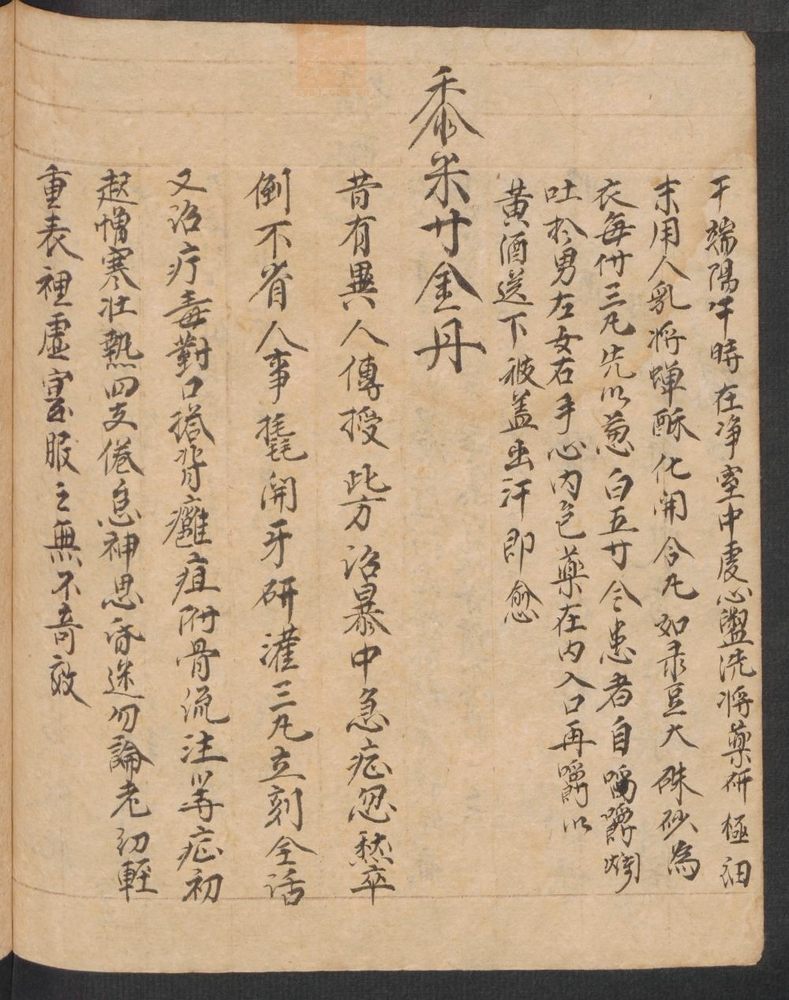 于端陽午時在净室中虔心盥洗將藥研極細
末用人乳將蟬酥化開合凡如菉豆大硃砂為
衣每付三凡先以葱白五寸令患者自嚼嚼爛
吐於男左女右手心内包藥在内入口再嚼以
黃酒送下被盖出汗即愈
黍米寸金丹
昔有異人傳授此方治暴中急症忽然卒
倒不省人事撬開牙研灌三凡立刻全活
又治疔毒對口搭背癰疽附骨流注等症初
起憎寒壮熱四支倦怠神思昏迷勿論老幼輕
重表裡虛實服之無不奇效